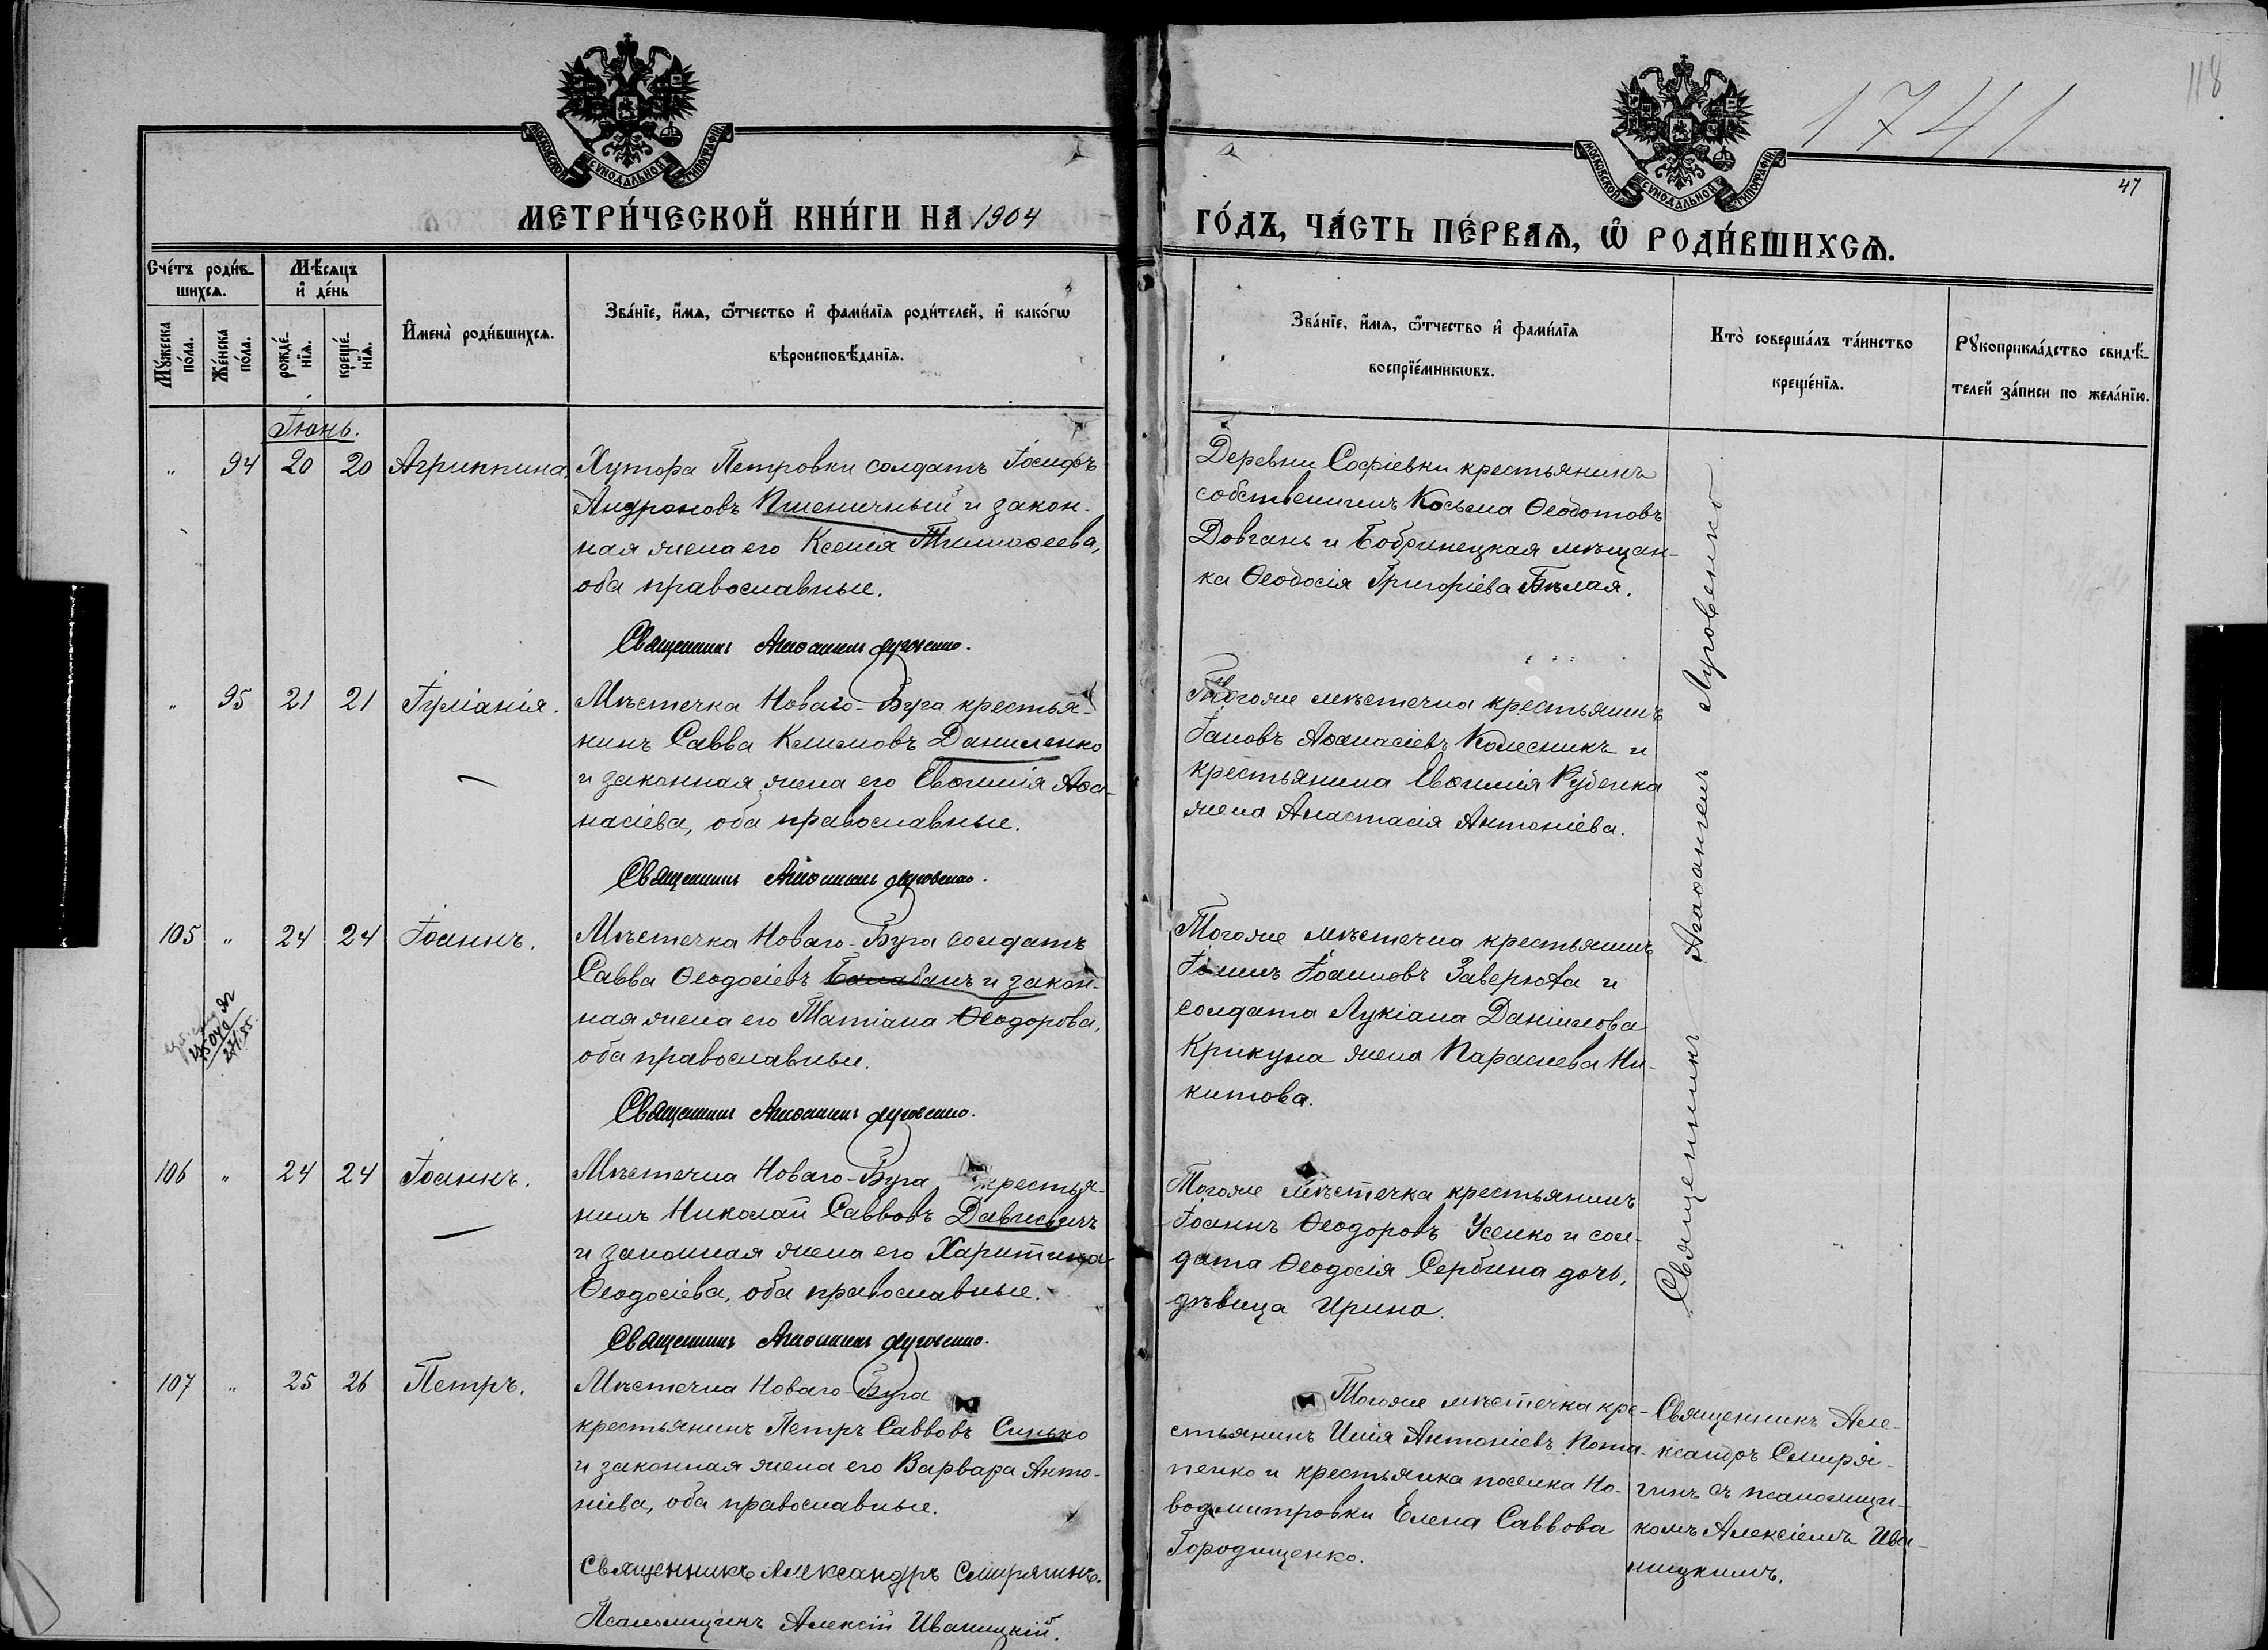 1741
118
47
МОСКОВСКОЙ СѴНОДАЛЬНОЙ ТИПОГРАФІИ
МОСКОВСКОЙ СѴНОДАЛЬНОЙ ТИПОГРАФІИ
МЕТРИ́ЧЕСКОЙ КНИ́ГИ НА 1904
ГО́ДЪ, ЧА́СТЬ ПЕ́РВАѦ, Ѡ҆ РОДИ́ВШИХСѦ.
Сче́тъ роди́в-
шихсѧ.
Мѣ́сѧцъ
и҆ де́нь
Мꙋ́жеска
по́ла.
Же́нска
по́ла.
рожде́-
нїѧ.
креще́-
нїѧ.
И҆мена̀ роди́вшихсѧ.
Зва́нїе, и҆́мѧ, ѻ҆́тчество и҆ фами́лїѧ роди́телей, и҆ како́гѡ
вѣроисповѣ́данїѧ.
Зва́нїе, и҆́мѧ, ѻ҆́тчество и҆ фами́лїѧ
воспрїе́мникѡвъ.
Кто̀ соверша́лъ та́инство
креще́нїѧ.
Рꙋкоприкла́дство свидѣ́-
телей за́писи по жела́нїю.
Іюнь.
" 94 20 20 Агриппина,
Хутора Петровки солдатъ Іосифъ
Андроновъ Пшеничный и закон-
ная жена его Ксенія Тимоѳеева,
оба православные.
Священникъ Агаѳангелъ Луговенко.
Деревни Софіевки крестьянинъ
собственникъ Косьма Ѳеодотовъ
Довгань и Бобринецкая мѣщан-
ка Ѳеодосія Григоріева Бѣлая.
" 95 21 21 Іуліанія.
Мѣстечка Новаго-Буга крестья-
нинъ Савва Климовъ Даниленко
и законная жена его Евѳимія Аѳа-
насіева, оба православные.
Священникъ Агаѳангелъ Луговенко.
Тогоже мѣстечка крестьянинъ
Іаковъ Аѳанасіевъ Колесникъ и
крестьянина Евѳимія Рубенка
жена Анастасія Антоніева.
105 " 24 24 Іоаннъ.
Мѣстечка Новаго-Буга солдатъ
Савва Ѳеодосіевъ Балабанъ и закон-
ная жена его Татіана Ѳеодорова,
оба православные.
Священникъ Агаѳангелъ Луговенко.
Тогоже мѣстечка крестьянинъ
Іоаннъ Іоанновъ Заверюха и
солдата Лукіана Даніилова
Крикуна жена Параскева Ни-
китова.
106 " 24 24 Іоаннъ.
Мѣстечка Новаго-Буга крестья-
нинъ Николай Саввовъ Дависвичъ
и законная жена его Харитина
Ѳеодосіева, оба православные.
Священникъ Агаѳангелъ Луговенко.
Тогоже мѣстечка крестьянинъ
Іоаннъ Ѳеодоровъ Усенко и сол-
дата Ѳеодосія Сербина дочь,
дѣвица Ирина.
Священникъ Агаѳангелъ Луговенко
107 " 25 26 Петръ.
Мѣстечка Новаго-Буга
крестьянинъ Петръ Саввовъ Синько
и законная жена его Варвара Анто-
ніева, оба православные.
Священникъ Александръ Смирягинъ.
Псаломщикъ Алексій Иваницкій.
Тогоже мѣстечка кре-
стьянинъ Илія Антоніевъ Пота-
пенко и крестьянка поселка Но-
водмитровки Елена Саввова
Городищенко.
Священникъ Але-
ксандръ Смиря-
гинъ съ псаломщи-
комъ Алексіемъ Ива-
ницкимъ.